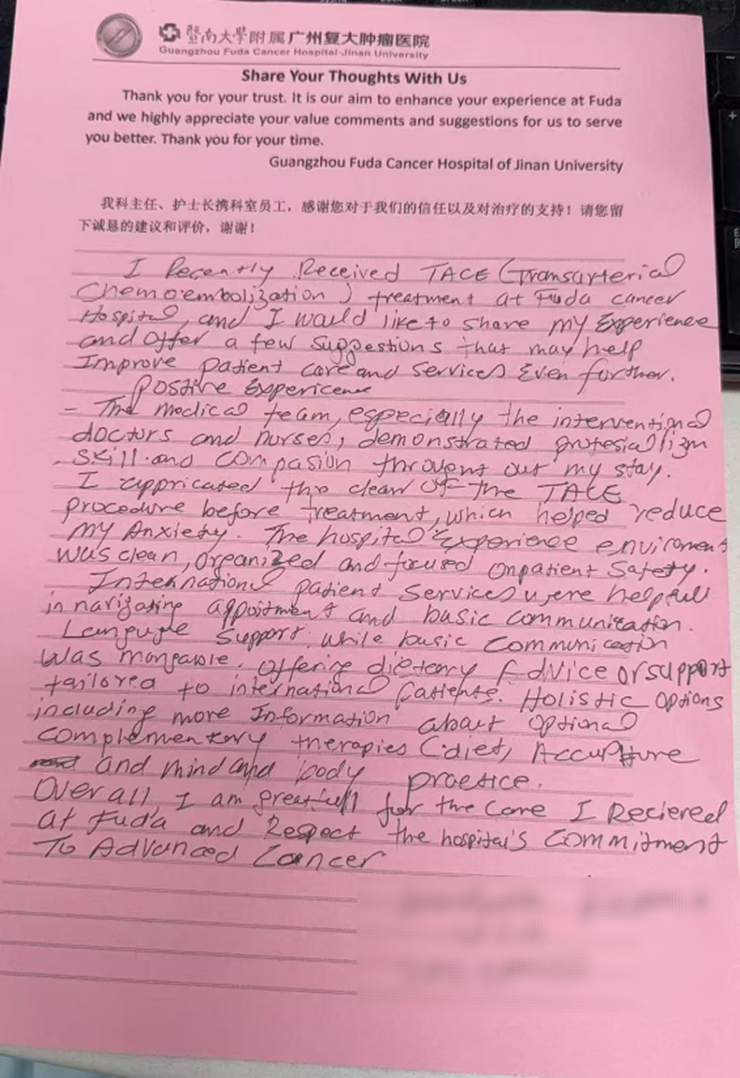 暨南大学附属广州复大肿瘤医院
Guangzhou Fuda Cancer Hospital·Jinan University
Share Your Thoughts With Us
Thank you for your trust. It is our aim to enhance your experience at Fuda
and we highly appreciate your value comments and suggestions for us to serve
you better. Thank you for your time.
Guangzhou Fuda Cancer Hospital of Jinan University
我科主任、护士长携科室员工，感谢您对于我们的信任以及对治疗的支持！请您留
下诚恳的建议和评价，谢谢！
I Recently Received TACE (Transarterial
Chemoembolization) treatment at Fuda cancer
Hospital, and I would like to share my Experience
and offer a few suggestions that may help
Improve patient care and services Even further.
Positive Experience
- The medical team, especially the interventional
doctors and nurses, demonstrated
skill and compasion my stay.
I appricated the clear of the TACE
procedure before treatment, which helped reduce
my Anxiety. The hospital Experience enviroment
was clean, organized and focused on patient Safety.
International patient Services were helpfull
in navigating appoitment and basic communication.
Language support: while basic communication
was offering dietary Advice or support
tailored to international patients. Holistic Options
including more Information about optional
complementary therapies (diet,
and mind and body practice.
Overall, I am greatfull for the care I Recieved
at Fuda and Respect the hospital's commitment
To Advanced Cancer